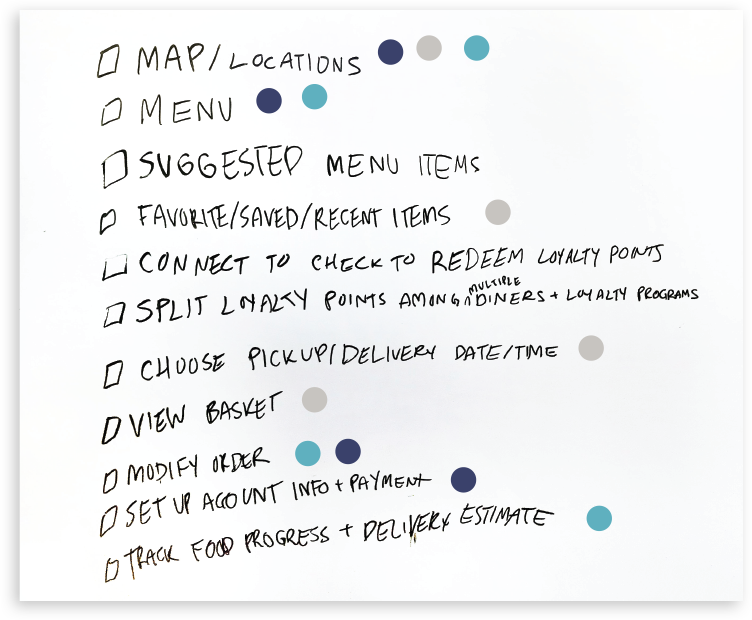 MAP/LOCATIONS
MENU
SUGGESTED MENU ITEMS
FAVORITE/SAVED/RECENT ITEMS
CONNECT TO CHECK TO REDEEM LOYALTY POINTS
SPLIT LOYALTY POINTS AMONG MULTIPLE DINERS + LOYALTY PROGRAMS
CHOOSE PICKUP/DELIVERY DATE/TIME
VIEW BASKET
MODIFY ORDER
SET UP ACCOUNT INFO + PAYMENT
TRACK FOOD PROGRESS + DELIVERY ESTIMATE